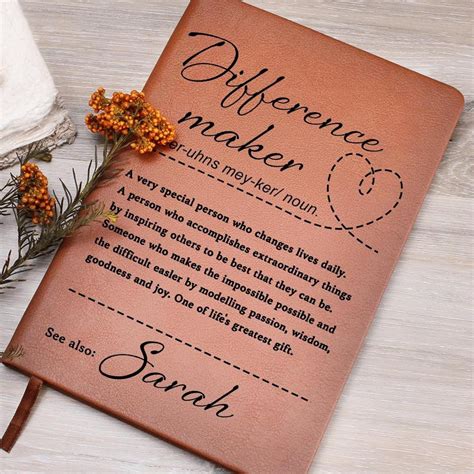 Difference
maker
er-uhns mey-ker/ noun.
A very special person who changes lives daily.
A person who accomplishes extraordinary things
by inspiring others to be best that they can be.
Someone who makes the impossible possible and
the difficult easier by modelling passion, wisdom,
goodness and joy. One of life's greatest gift.
See also: Sarah